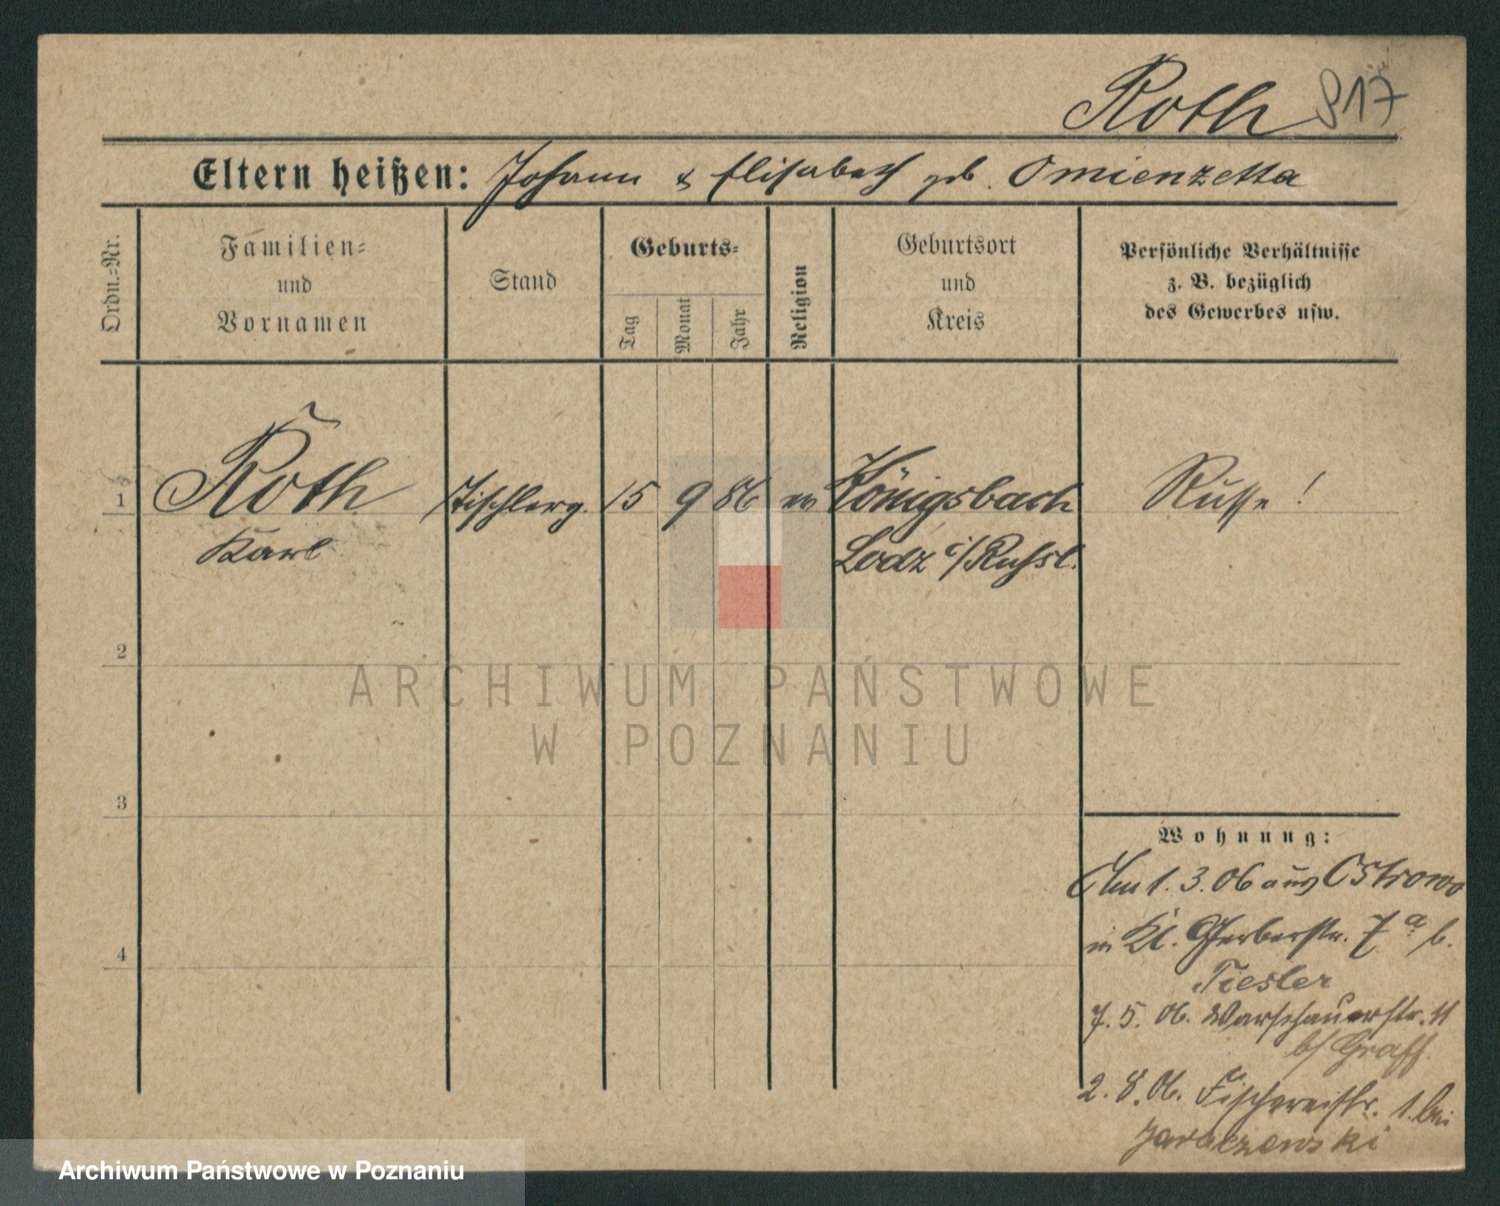 Roth 817
Eltern heißen: Johann & Elisabeth geb. Omienzetta
Ordn.-Nr.
Familien- und Vornamen
Stand
Geburts-
Tag
Monat
Jahr
Religion
Geburtsort und Kreis
Persönliche Verhältnisse z. B. bezüglich des Gewerbes usw.
1 Roth Tischlerg. 15 9 86 ev Königsbach Russe!
Karl Lodz i/Russl.
2
3
4
Wohnung:
Am 1. 3. 06 aus Ostrowo
in Kl. Gerberstr. 7a b.
Tiesler
7. 5. 06. Warschauerstr. 11
b/ Graff.
2. 8. 06. Fischereistr. 1. bei
Jaraczewski
ARCHIWUM PAŃSTWOWE
W POZNANIU
Archiwum Państwowe w Poznaniu